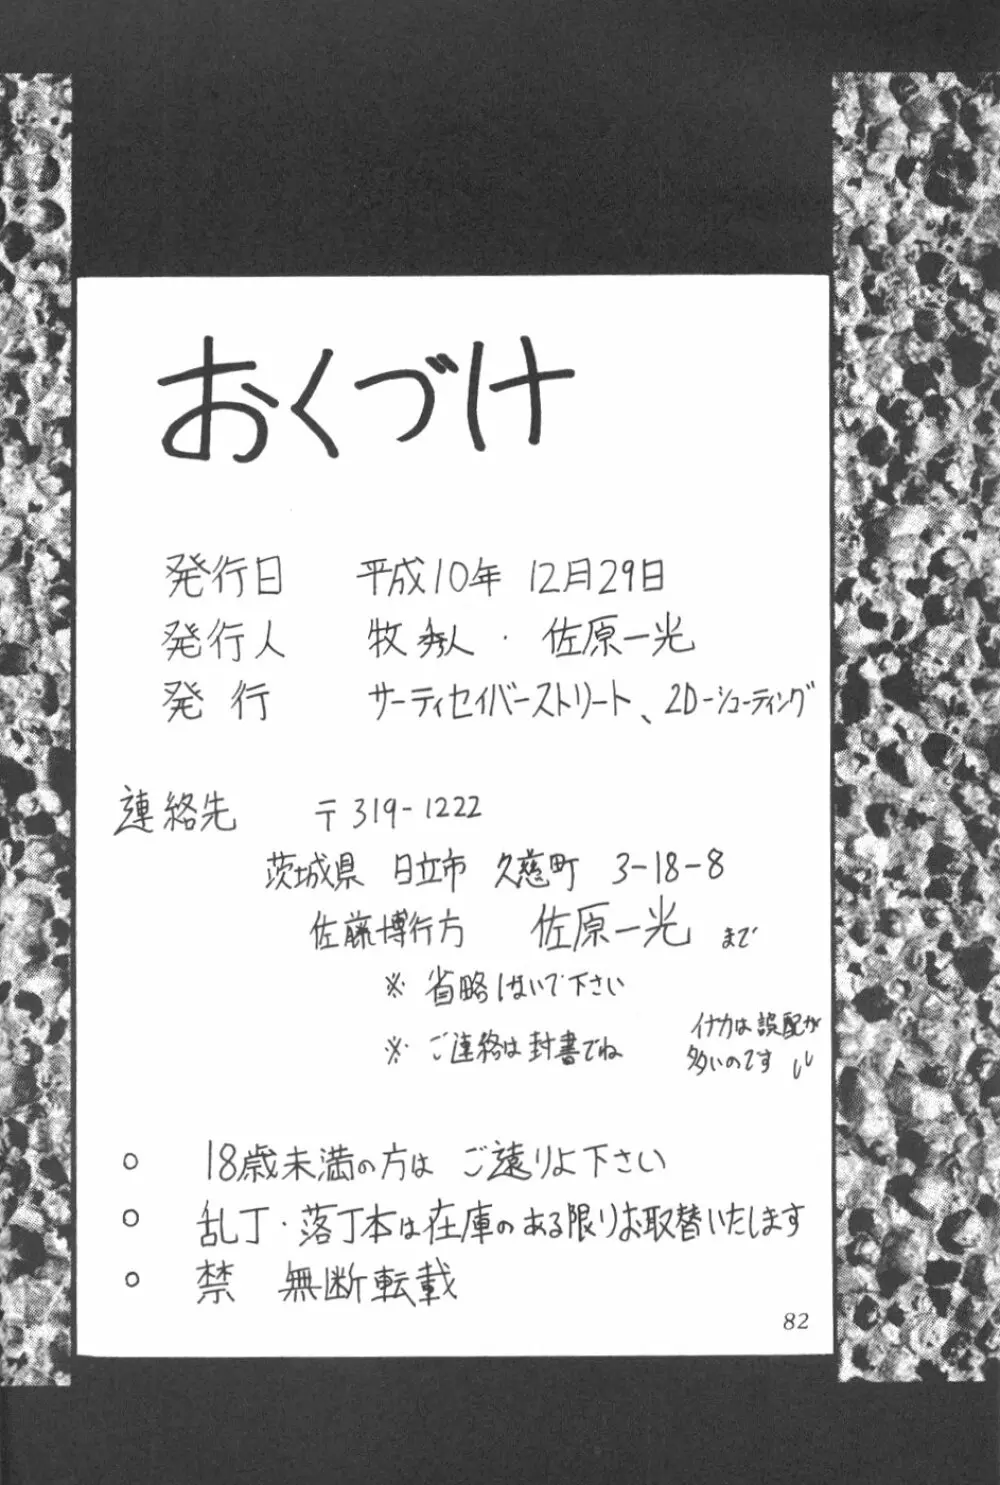 おくづけ
発行日 平成10年 12月29日
発行人 牧秀人・佐原一光
発行 サーティセイバーストリート、2D-シューティング
連絡先 〒319-1222
茨城県 日立市 久慈町 3-18-8
佐藤博行方 佐原一光 まで
※ 省略しないで下さい
※ ご連絡は封書でね
イナカは誤配が
多いのです
○ 18歳未満の方は ご遠りよ下さい
○ 乱丁・落丁本は在庫のある限りお取替いたします
○ 禁 無断転載
82